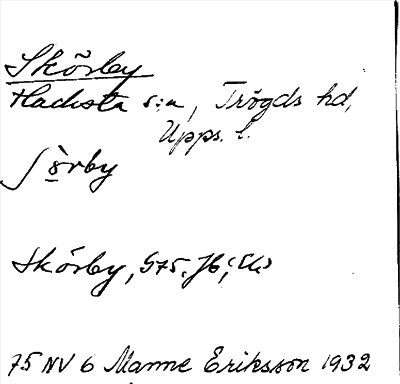 Skörby
Hacksta s:n, Trögds hd,
Upps. l.
Skörby,
75 NV 6 Manne Eriksson 1932